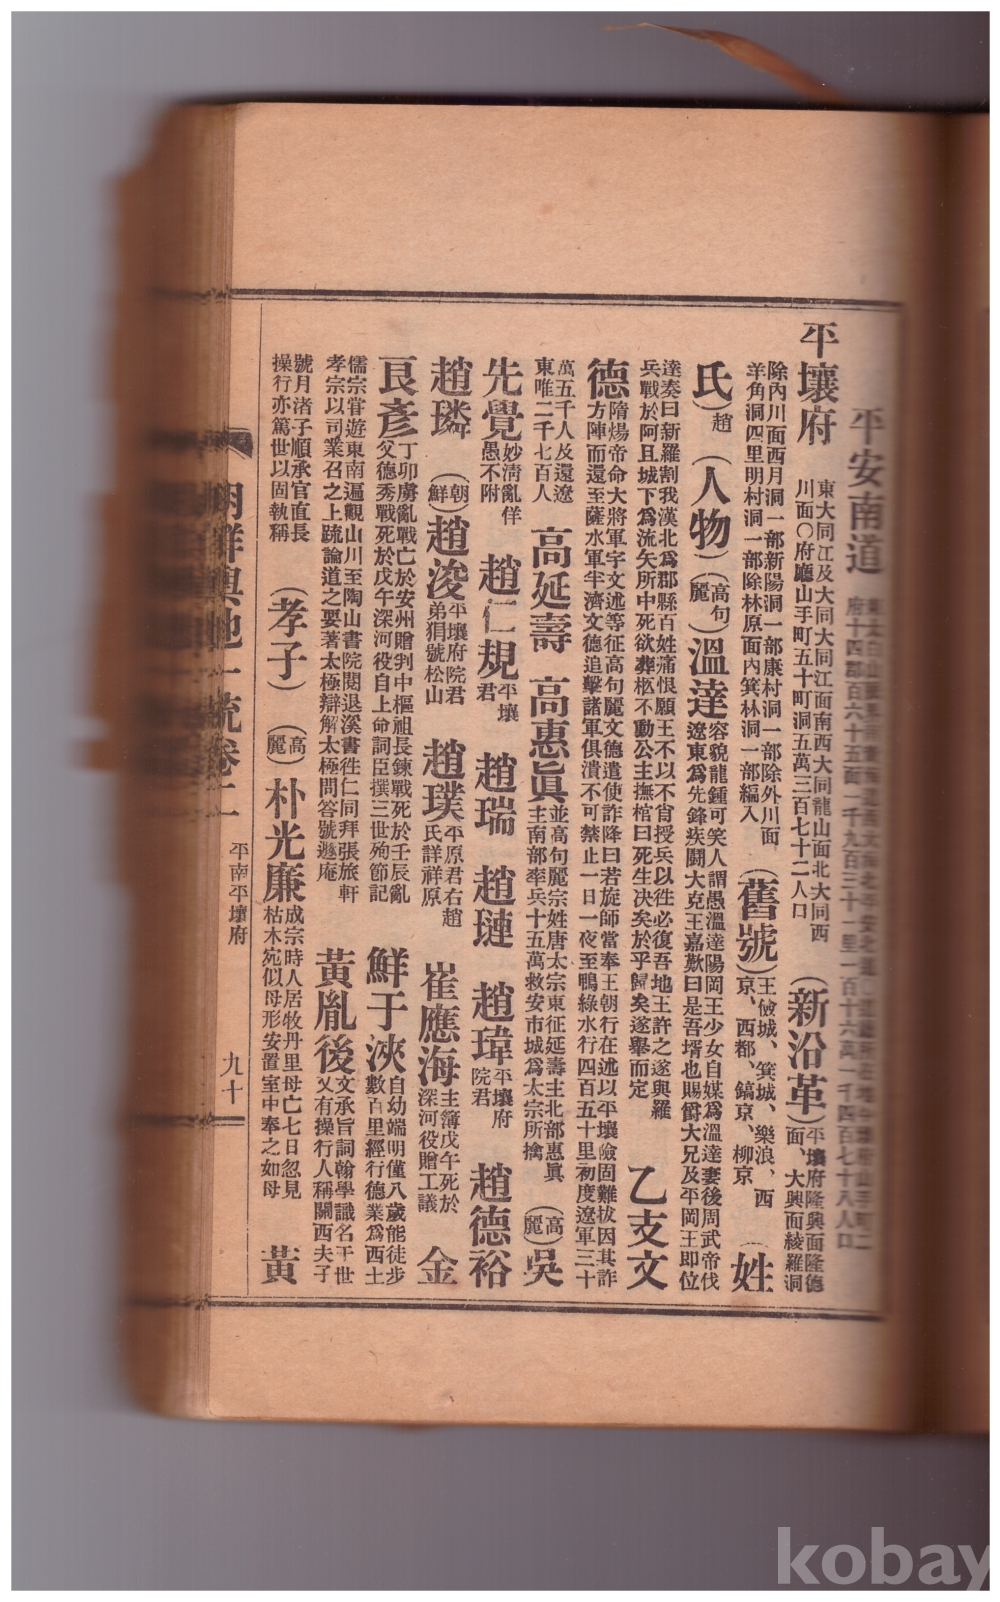 平安南道
府十四郡百六十五面一千九百三十一里一百十六萬一千四百七十八人口
平壤府
東大同江及大同大同江面南西大同龍山面北大同西
川面〇府廳山手町五十町洞五萬三百七十二人口
(新沿革)
平壤府隆興面隆德
面、大興面綾羅洞
除內川面西月洞一部新陽洞一部康村洞一部除外川面
羊角洞四里明村洞一部除林原面內箕林洞一部編入
(舊號)
王儉城、箕城、樂浪、西
京、西都、鎬京、柳京
(姓
氏)趙
(人物)(高句麗)溫達
容貌龍鍾可笑人謂愚溫達陽岡王少女自媒爲溫達妻後周武帝伐
遼東爲先鋒疾鬪大克王嘉歎曰是吾壻也賜爵大兄及平岡王即位
達奏曰新羅割我漢北爲郡縣百姓痛恨願王不以不肖授兵以徃必復吾地王許之遂與羅
兵戰於阿且城下爲流矢所中死欲葬柩不動公主撫棺曰死生決矣於乎歸矣遂舉而定
乙支文
德
隋煬帝命大將軍宇文述等征高句麗文德遣使詐降曰若旋師當奉王朝行在述以平壤儉固難拔因其詐
方陣而還至薩水軍半濟文德追擊諸軍俱潰不可禁止一日一夜至鴨綠水行四百五十里初度遼軍三十
萬五千人及還遼
東唯二千七百人
高延壽 高惠眞
並高句麗宗姓唐太宗東征延壽主北部惠眞
主南部率兵十五萬救安市城爲太宗所擒
(高麗)吳
先覺
妙淸亂佯
愚不附
趙仁規
平壤
君
趙瑞 趙璉 趙瑋
平壤府
院君
趙德裕
趙璘
(朝鮮)趙浚
平壤府院君
弟狷號松山
趙璞
平原君右趙
氏詳祥原
崔應海
主簿戊午死於
深河役贈工議
金
良彥
丁卯虜亂戰亡於安州贈判中樞祖長鍊戰死於壬辰亂
父德秀戰死於戊午深河役自上命詞臣撰三世殉節記
鮮于浹
自幼端明僅八歲能徒步
數百里經行德業爲西土
儒宗甞遊東南遍觀山川至陶山書院閱退溪書徃仁同拜張旅軒
孝宗以司業召之上疏論道之要著太極辯解太極問答號遯庵
黃胤後
文承旨詞翰學識名于世
又有操行人稱關西夫子
號月渚子順承官直長
操行亦篤世以固執稱
(孝子)(高麗)朴光廉
成宗時人居牧丹里母亡七日忽見
枯木宛似母形安置室中奉之如母
黃
朝鮮輿地一統卷二
平南平壤府
九十
kobay